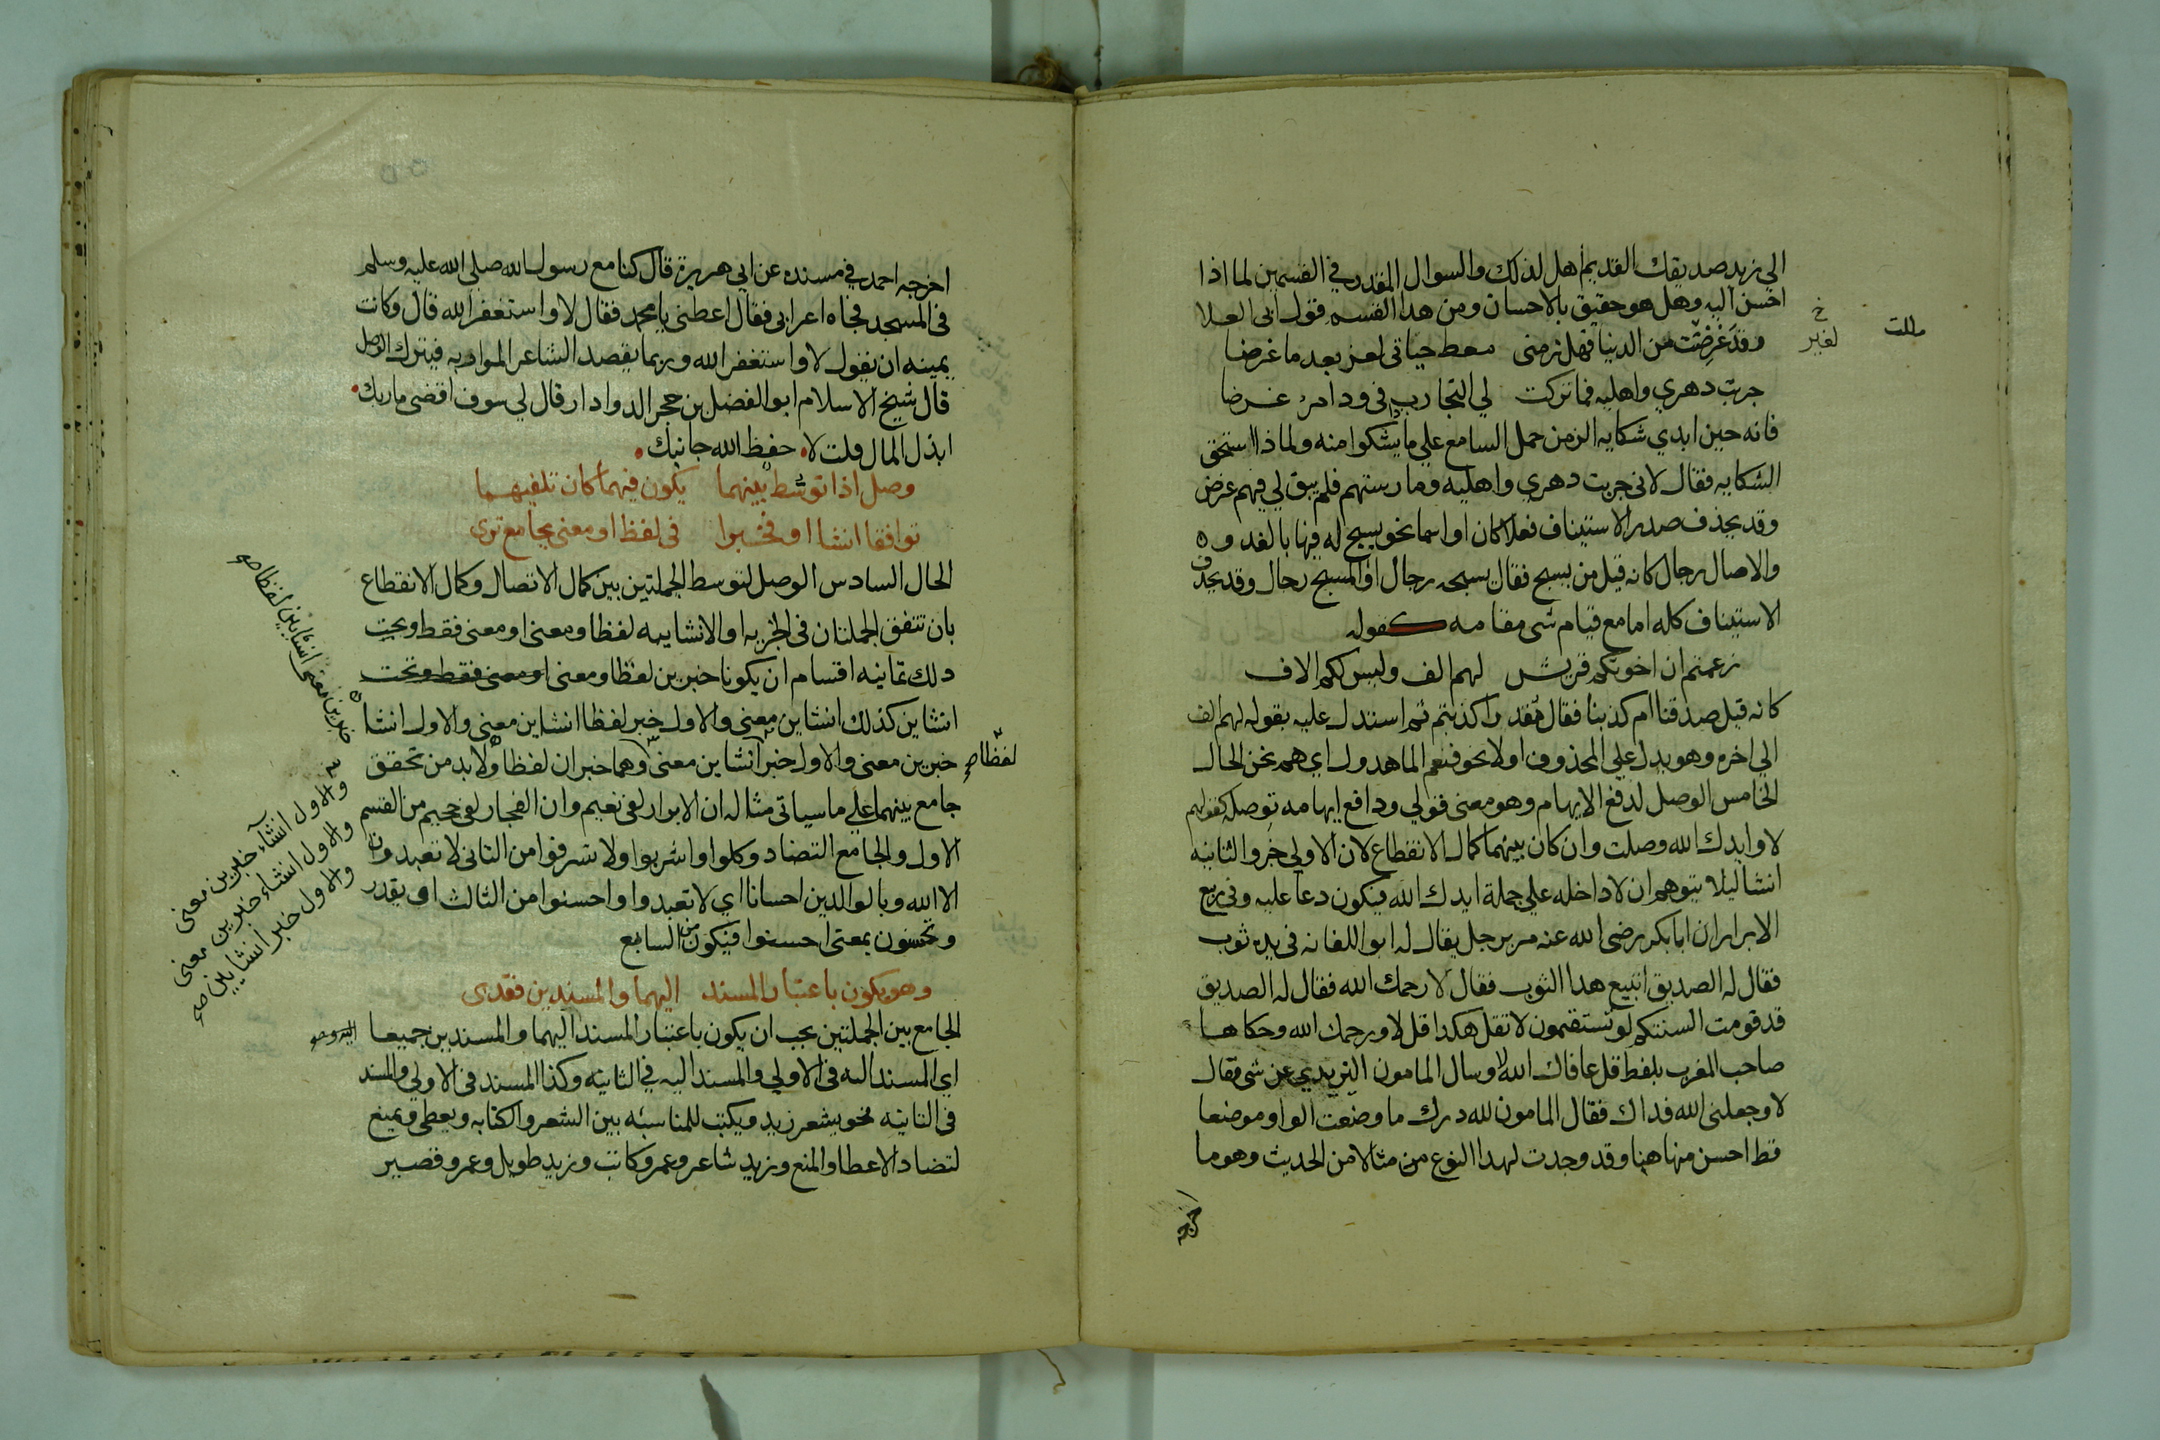 الي زيد صديقك القديم اهل لذلك والسوال المقدر في القسمين لما اذا
احسن اليه وهل هو حقيق بالاحسان ومن هذا القسم قول ابى العلا
وقد غَرِضْت من الدنيا فهل زمنى معط حياتى لغر بعد ما غرضا
جربت دهري واهليه فما تركت لي التجارب فى ود امرء غرضا
فانه حين ابدي شكايه الزمن حمل السامع علي ما يشكوا منه ولماذا استحق
الشكايه فقال لانى جربت دهري واهليه ومارستهم فلم يبق لي فيهم غرض
وقد يحذف صدر الاستيناف فعلا كان او اسما نحو يسبح له فيها بالغدو
والاصال رجال كانه قيل من يسبح فقال يسبحه رجال او المسبح رجال وقد يحذف
الاستيناف كله اما مع قيام شى مقامه كقوله
زعمتم ان اخوتكم قريش لهم الف وليس لكم الاف
كانه قيل صدقنا ام كذبنا فقال مُقدرا كذبتم ثم استدل عليه بقوله لهم الف
الي اخره وهو يدل علي المحذوف اولا نحو فنعم الماهدون اي هم نحن الحال
الخامس الوصل لدفع الايهام وهو معنى قولي ودافع ايهامه توصله كقولهم
لا وايدك الله وصلت وان كان بينهما كمال الانقطاع لان الاولي خبر والثانيه
انشا ليلا يتوهم ان لا داخله علي جملة ايدك الله فيكون دعا عليه وفى ربيع
الابرار ان ابا بكر رضى الله عنه مر برجل يقال له ابو اللفانه فى يده ثوب
فقال له الصديق اتبيع هذا الثوب فقال لا رحمك الله فقال له الصديق
قد قومت السنتكم لو تستقيمون لا تقل هكذا قل لا ورحمك الله وحكاها
صاحب المغرب بلفظ قل عافاك الله لا وسال المامون اليزيدي عن شى فقال
لا وجعلنى الله فداك فقال المامون لله درك ما وضعت الواو موضعا
قط احسن منها هنا وقد وجدت لهذا النوع من مثالا من الحديث وهو ما
اخرجه
خ
لغير
مللت
اخرجه احمد في مسنده عن ابي هريرة قال كنا مع رسول الله صلى الله عليه وسلم
فى المسجد فجاه اعرابى فقال اعطنى يا محمد فقال لا واستغفر الله قال وكانت
يمينه ان يقول لا واستغفر الله وربما يقصد الشاعر المواربه فيترك الوصل
قال شيخ الاسلام ابو الفضل بن حجر الدوادار قال لي سوف اقضى ماربك
ابذل المال قلت لا حفظ الله جانبك
وصل اذا توسط بينهما يكون فيهما كان تلفيهما
توافقا انشا او فخبرا فى لفظ او معنى بجامع تري
الحال السادس الوصل لتوسط الجملتين بين كمال الاتصال وكمال الانقطاع
بان تتفق الجملتان فى الخبريه او الانشاييه لفظا ومعنى او معنى فقط وتحت
ذلك ثمانيه اقسام ان يكونا خبرين لفظا ومعنى او معنى فقط وتحت
انشاين كذلك انشاين معنى والاول خبر لفظا انشاين معنى والاول انشا
خبرين معنى والاول خبر انشاين معنى وهما خبران لفظا ولا بد من تحقق
جامع بينهما علي ما سياتى مثاله ان الابرار لفى نعيم وان الفجار لفى جحيم من القسم
الاول والجامع التضاد وكلوا واشربوا ولا تسرفوا من الثانى لا تعبدون
الا الله وبالوالدين احسانا اي لا تعبدوا واحسنوا من الثالث او يقدر
وتحسنون بمعنى احسنوا فيكون من السابع
وهو يكون باعتبار المسند اليهما والمسندين فقدى
الجامع بين الجملتين يجب ان يكون باعتبار المسند اليهما والمسندين جميعا
اي المسند اليه فى الاولي والمسند اليه في الثانيه وكذا المسند فى الاولي والمسند
فى الثانيه نحو يشعر زيد ويكتب للمناسبه بين الشعر والكتابه ويعطى ويمنع
لتضاد الاعطا والمنع وزيد شاعر وعمرو كاتب وزيد طويل وعمرو قصير
لفظا صح
خبرين معنى انشاين لفظا صح
والاول انشآء خبرين معنى
والاول انشاء خبرين معنى
والاول خبر انشاين صح